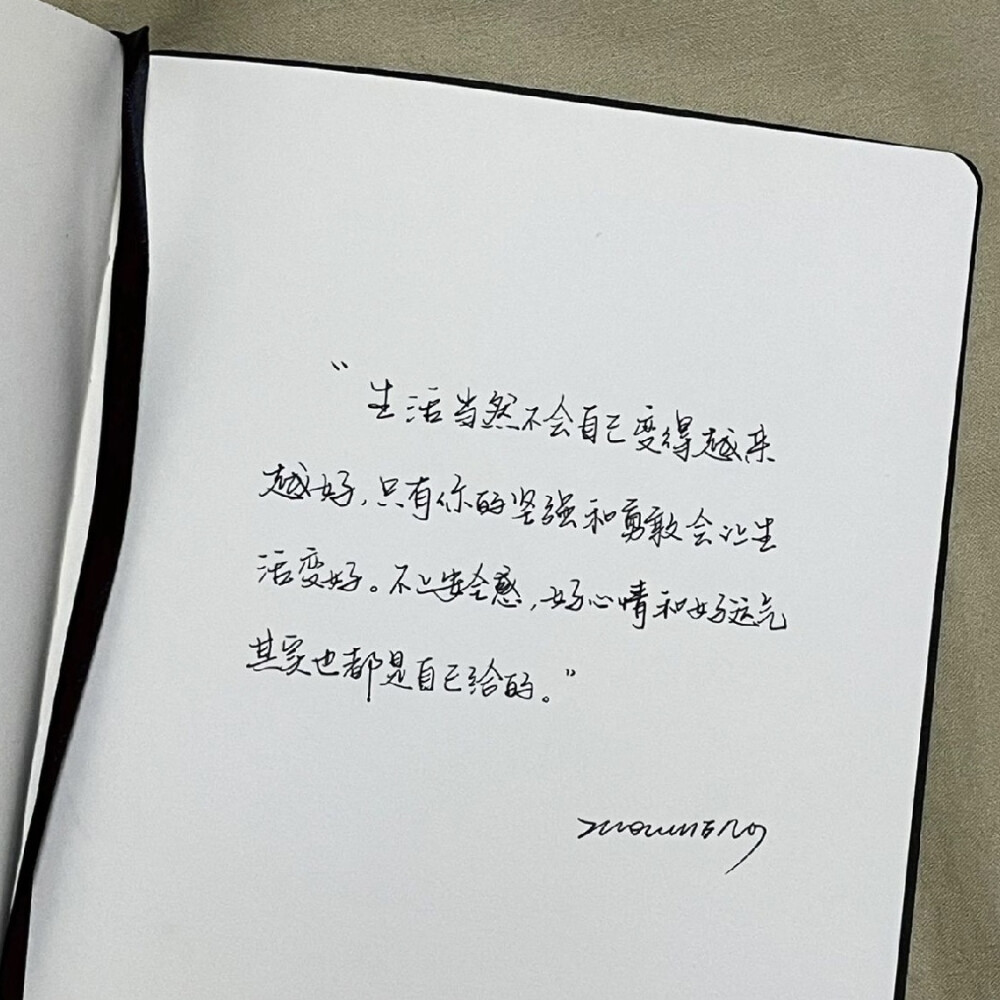 “生活当然不会自己变得越来
越好,只有你的坚强和勇敢会让生
活变好。不止安全感,好心情和好运气
其实也都是自己给的。”